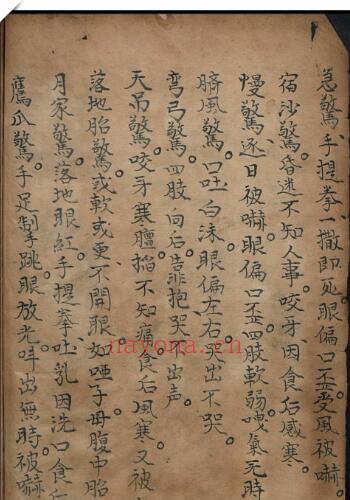 急驚。手提拳一撒即死。眼偏口歪。受風被嚇。
宿沙驚。昏迷不知人事。咬牙。因食后感寒。
慢驚。逐日被嚇。眼偏口歪。四肢軟弱。氣无時
臍風驚。口吐白沫。眼偏左右。哭出不哭。
弯弓驚。四肢向后靠抱。哭不出声
天吊驚。咬牙寒膻。掐不知痛。食后風寒。又被
落地胎驚。或軟或更。不開眼。如哑子。母腹中胎
月家驚。落地眼紅。手提拳。吐乳。因洗口食后
鷹爪驚。手足掣跳。眼放光。呌出無時。被嚇
nayona.cn